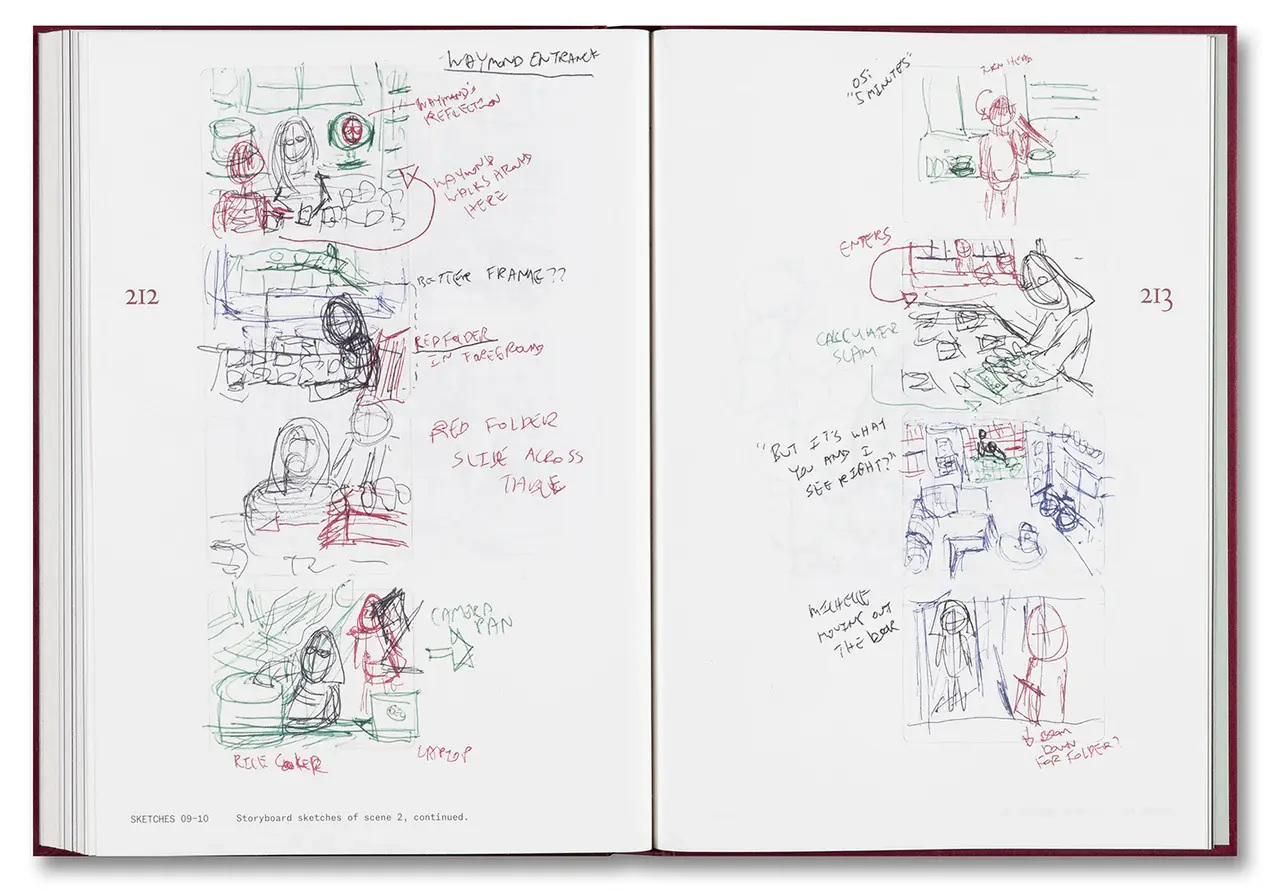 WAYMOND ENTRANCE
WAYMOND'S
REFLECTION
WAYMOND
WALKS AROUND
HERE
212
BETTER FRAME??
RED FOLDER
IN FOREGROUND
RED FOLDER
SLIDE ACROSS
TABLE
CAMERA
PAN
RICE COOKER
LAPTOP
SKETCHES 09–10 Storyboard sketches of scene 2, continued.
OS:
"5 MINUTES"
TURN HEAD
ENTERS
213
CALCULATER
SLAM
"BUT IT'S WHAT
YOU AND I
SEE RIGHT?"
MICHELLE
MOVING OUT
THE DOOR
DOWN
FOR FOLDER?